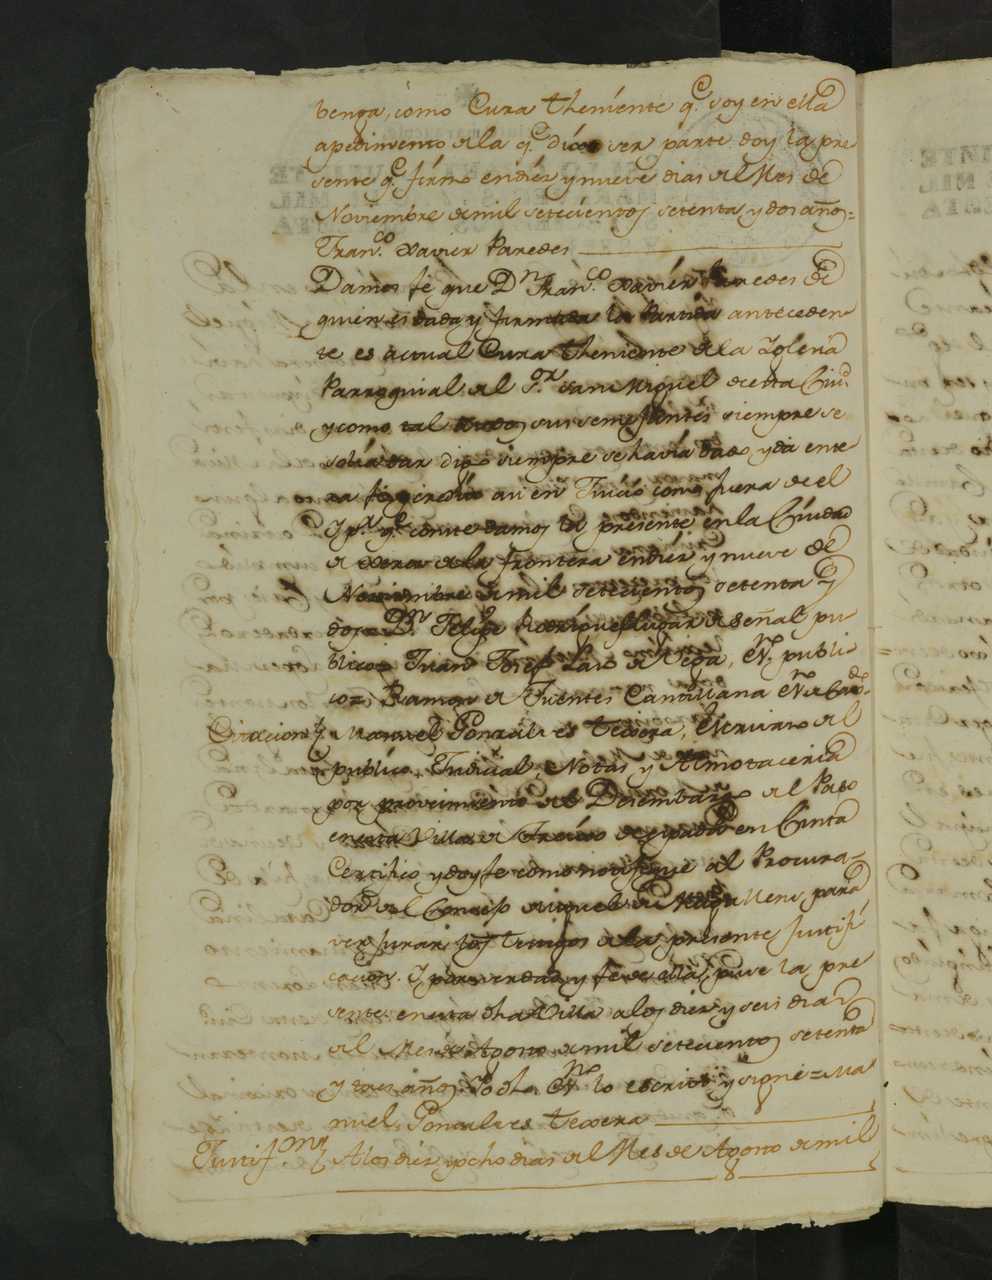 benga, como Cura theniente q.e soy en ella
apedimento de la q.e dijo ser parte doy la pre
sente q.e firmo en diez y nueve dias del Mes de
Noviembre de mil setecientos setenta y dos años=
Fran.co Xavier Paredes
Damos fe que D.n Fran.co Xavier Paredes de
quien es dada y firmada la Partida anteceden
te es actual Cura theniente de la Iglesia
Parroquial del S.r San Miguel de esta Ciud.
y como tal todos sus semejantes siempre se
solia dar digo siempre se havia dado y da ente
ra fee y credito asi en Juicio como fuera de el
Y p.a q.e conste damos la presente en la Ciudad
de Xerez de la frontera en diez y nueve de
Noviembre de mil setecientos setenta y
dos= D.n Felipe Rodrigues lugar de señal pu
blico= Juan Josef Laso de Vega, Es.no publi
co= Ramon de Fuentes Cantillana Es.no de Cav.do
Citacion Manuel Gonzalves Texera, Escrivano del
publico, Judicial, Notas y Almotaceria
por proveimiento del Desembargo del Paso
en esta Villa de
Certifico y doy fe como notifique al Procura-
dor del Consejo para
ver jurar los testigos de la presente Justifi
cacion. Y por verdad y fe de ella, puse la pre
sente en esta dha Villa a los diez y seis dias
del Mes de Agosto de mil setecientos setenta
y tres años. Yo dho Es.no lo escrivi y signé=Ma
nuel Gonzalves Texera
Justif.on A los diez y ocho dias del Mes de Agosto de mil